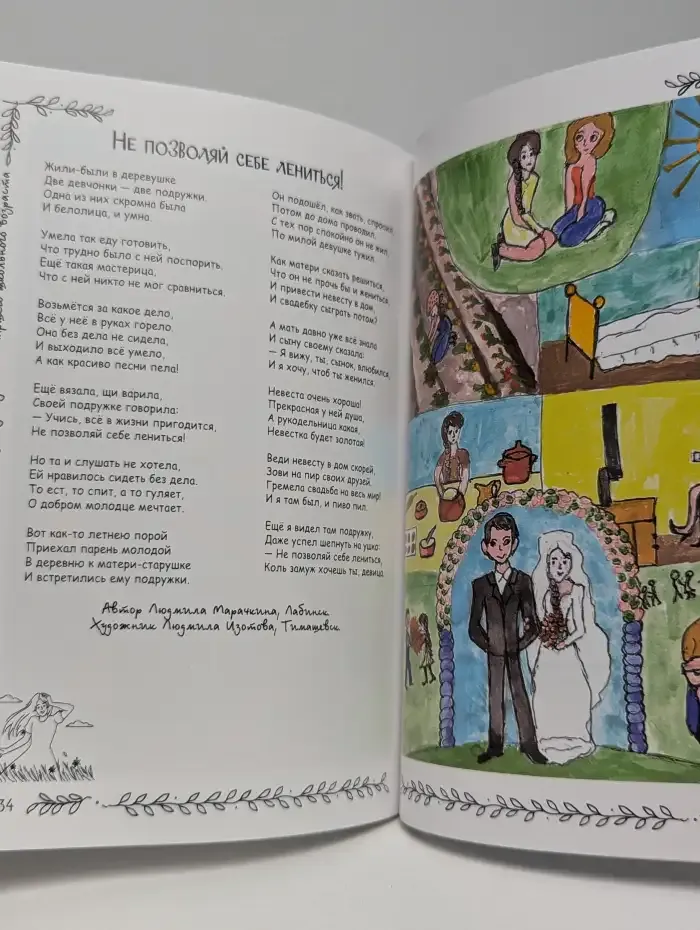 Не позволяй себе лениться!
Жили-были в деревушке
Две девчонки — две подружки.
Одна из них скромна была
И белолица, и умна.
Умела так еду готовить,
Что трудно было с ней поспорить.
Ещё такая мастерица,
Что с ней никто не мог сравниться.
Возьмётся за какое дело,
Всё у неё в руках горело.
Она без дела не сидела,
И выходило всё умело,
А как красиво песни пела!
Ещё вязала, щи варила,
Своей подружке говорила:
— Учись, всё в жизни пригодится,
Не позволяй себе лениться!
Но та и слушать не хотела,
Ей нравилось сидеть без дела.
То ест, то спит, а то гуляет,
О добром молодце мечтает.
Вот как-то летнею порой
Приехал парень молодой
В деревню к матери-старушке
И встретились ему подружки.
Он подошёл, как звать, спросил,
Потом до дома проводил.
С тех пор спокойно он не жил,
По милой девушке тужил.
Как матери сказать решиться,
Что он не прочь бы и жениться,
И привести невесту в дом,
И свадебку сыграть потом?
А мать давно уже всё знала
И сыну своему сказала:
— Я вижу, ты, сынок, влюбился,
И я хочу, чтоб ты женился.
Невеста очень хороша!
Прекрасная у ней душа,
А рукодельница какая,
Невестка будет золотая!
Веди невесту в дом скорей,
Зови на пир своих друзей.
Гремела свадьба на весь мир!
И я там был, и пиво пил.
Ещё я видел там подружку,
Даже успел шепнуть на ушко:
— Не позволяй себе лениться,
Коль замуж хочешь ты, девица.
Автор Людмила Марачкина, Лабинск
Художник Людмила Изотова, Тимашевск
школьного возраста
34